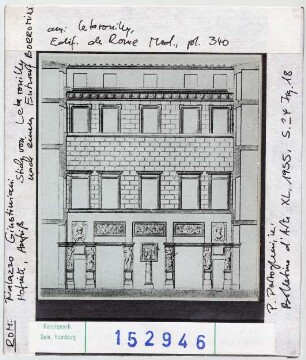 aus: Letarouilly,
Edif. de Rome Mod., pl. 340
ROM: Palazzo Giustiniani
Hofseite, Aufriß
Stich von Letarouilly
nach einem Entwurf BORROMINIS
P. Portoghesi, in:
Bollettino d'Arte XL, 1955, S. 24 Fig. 18
Kunstgesch.
Sem. Hamburg
152946